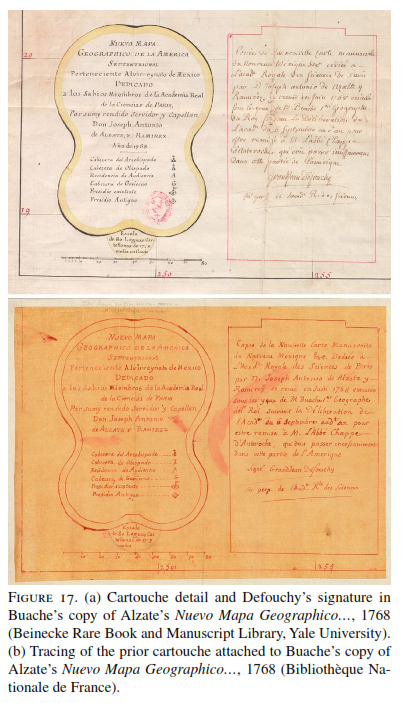 20
19
NUEVO MAPA
GEOGRAPHICO DE LA AMERICA
SEPTENTRIONAL
Perteneciente Al virreynato de Mexico
DEDICADO
a los Sabios Miembros de la Academia Real
de la Ciencias de Paris,
Por su muy rendido Servidor y Capellan
Don Joseph Antonio
de ALZATE, y RAMIREZ
Año de 1768
Cabecera de Arzobispado
Cabecera de Obispado
Residencia de Audiencia
Cabecera de Gobierno
Presidio existente
Presidio Antiguo
Escala
de 80 Leguas Cas
tellanas de 17. ½
en
250
255
Copie de la nouvelle Carte manuscrite
du nouveau Mexique &c dédiée à
L'Acad. Royale des Sciences de Paris
par D. Joseph Antonio de Alzate y
Ramirez,
de M. Buache 1er Geographe
du Roy
Grandjean Defouchy
NUEVO MAPA
GEOGRAPHICO DE LA AMERICA
SEPTENTRIONAL
Perteneciente Al virreynato de Mexico
DEDICADO
a los Sabios Miembros de la Academia Real
de la Ciencias de Paris
Por su muy rendido Servidor y Capellan
Don Joseph Antonio
de ALZATE y RAMIREZ
Cabecera de Arzobispado
Cabecera de Obispado
Residencia de Audiencia
Cabecera de Gobierno
Presidio existente
Presidio Antiguo
Escala
de 80 Leguas Cas
tellanas de 17 ½
250
255
Copie de la Nouvelle Carte Manuscrite
du Nouveau Mexique &c. Dediée a
L'Acad. Royale des Sciences de Paris
par D. Joseph Antonio de Alzate y
Ramirez et remise en Juin 1768
sous les yeux de M. Buache 1er Geographe
du Roi suivant la Déliberation de
l'Acad. du 6 Septembre aud. an pour
être remise a M. L'Abbé Chappe
d'Auteroche, qui doit passer incessamment
dans cette partie de l'Amerique
Signé Grandjean Defouchy
Sec. perp. de l'Acad. Rle. des Sciences
FIGURE 17. (a) Cartouche detail and Defouchy's signature in
Buache's copy of Alzate's Nuevo Mapa Geographico..., 1768
(Beinecke Rare Book and Manuscript Library, Yale University).
(b) Tracing of the prior cartouche attached to Buache's copy of
Alzate's Nuevo Mapa Geographico..., 1768 (Bibliothèque Na-
tionale de France).